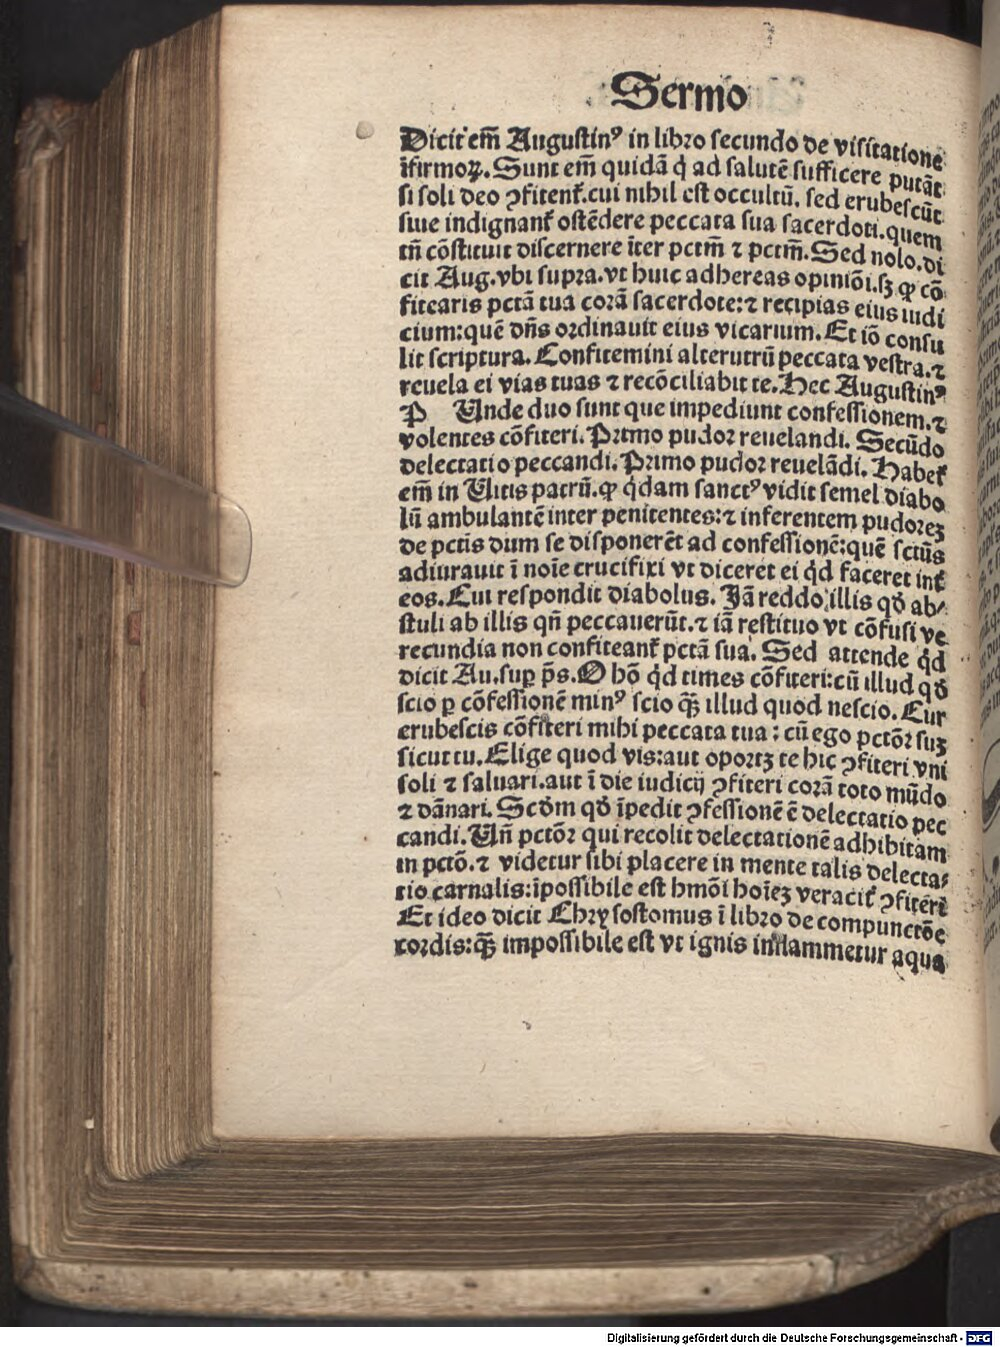 Sermo
Dicit em̄ Augustinꝰ in libro secundo de visitatione
īfirmoꝝ. Sunt em̄ quidā q̇ ad salutē sufficere putāt
si soli deo ꝯfitent᷑. cui nihil est occultū. sed erubescūt
siue indignant᷑ ostēdere peccata sua sacerdoti. quem
tn̄ cōstituit discernere īter pctm̄ ⁊ pctm̄. Sed nolo. di
cit Aug. vbi supra. vt huic adhereas opiniōi. sꝫ ꝙ cō
fitearis pctā tua corā sacerdote: ⁊ recipias eius iudi
cium: quē dn̄s ordinauit eius vicarium. Et iō consu
lit scriptura. Confitemini alterutrū peccata vestra. ⁊
reuela ei vias tuas ⁊ recōciliabit te. Hec Augustinꝰ
P̱ Unde duo sunt que impediunt confessionem. ⁊
volentes cōfiteri. Primo pudor reuelandi. Secūdo
delectatio peccandi. Primo pudor reuelādi. Habet᷑
em̄ in Uitis patrū. ꝙ qdam sanctꝰ vidit semel diabo
lū ambulantē inter penitentes: ⁊ inferentem pudoreꝫ
de pctīs dum se disponerēt ad confessionē: quē sctūs
adiurauit ī noīe crucifixi vt diceret ei qd faceret int᷑
eos. Cui respondit diabolus. Jā reddo illis qđ ab⸗
stuli ab illis qn̄ peccauerūt. ⁊ iā restituo vt cōfusi ve
recundia non confiteant᷑ pctā sua. Sed attende qd
dicit Au. suꝑ p̄s. O hō qd times cōfiteri: cū illud qđ
scio ꝑ cōfessionē minꝰ scio qꝫ̄ illud quod nescio. Cur
erubescis cōfiteri mihi peccata tua: cū ego pctōr suꝫ
sicut tu. Elige quod vis: aut oportꝫ te hic ꝯfiteri vni
soli ⁊ saluari. aut ī die iudicij ꝯfiteri corā toto mūdo
⁊ dānari. Scđm qđ īpedit ꝯfessionē ē delectatio pec
candi. Un̄ pctōr qui recolit delectationē adhibitam
in pctō. ⁊ videtur sibi placere in mente talis delecta⸗
tio carnalis: īpossibile est hmōi hoīeꝫ veracit᷑ ꝯfiteri
Et ideo dicit Chrysostomus ī libro de compunctōe
cordis: qꝫ̄ impossibile est vt ignis inflammetur aqua
Digitalisierung gefördert durch die Deutsche Forschungsgemeinschaft - DFG